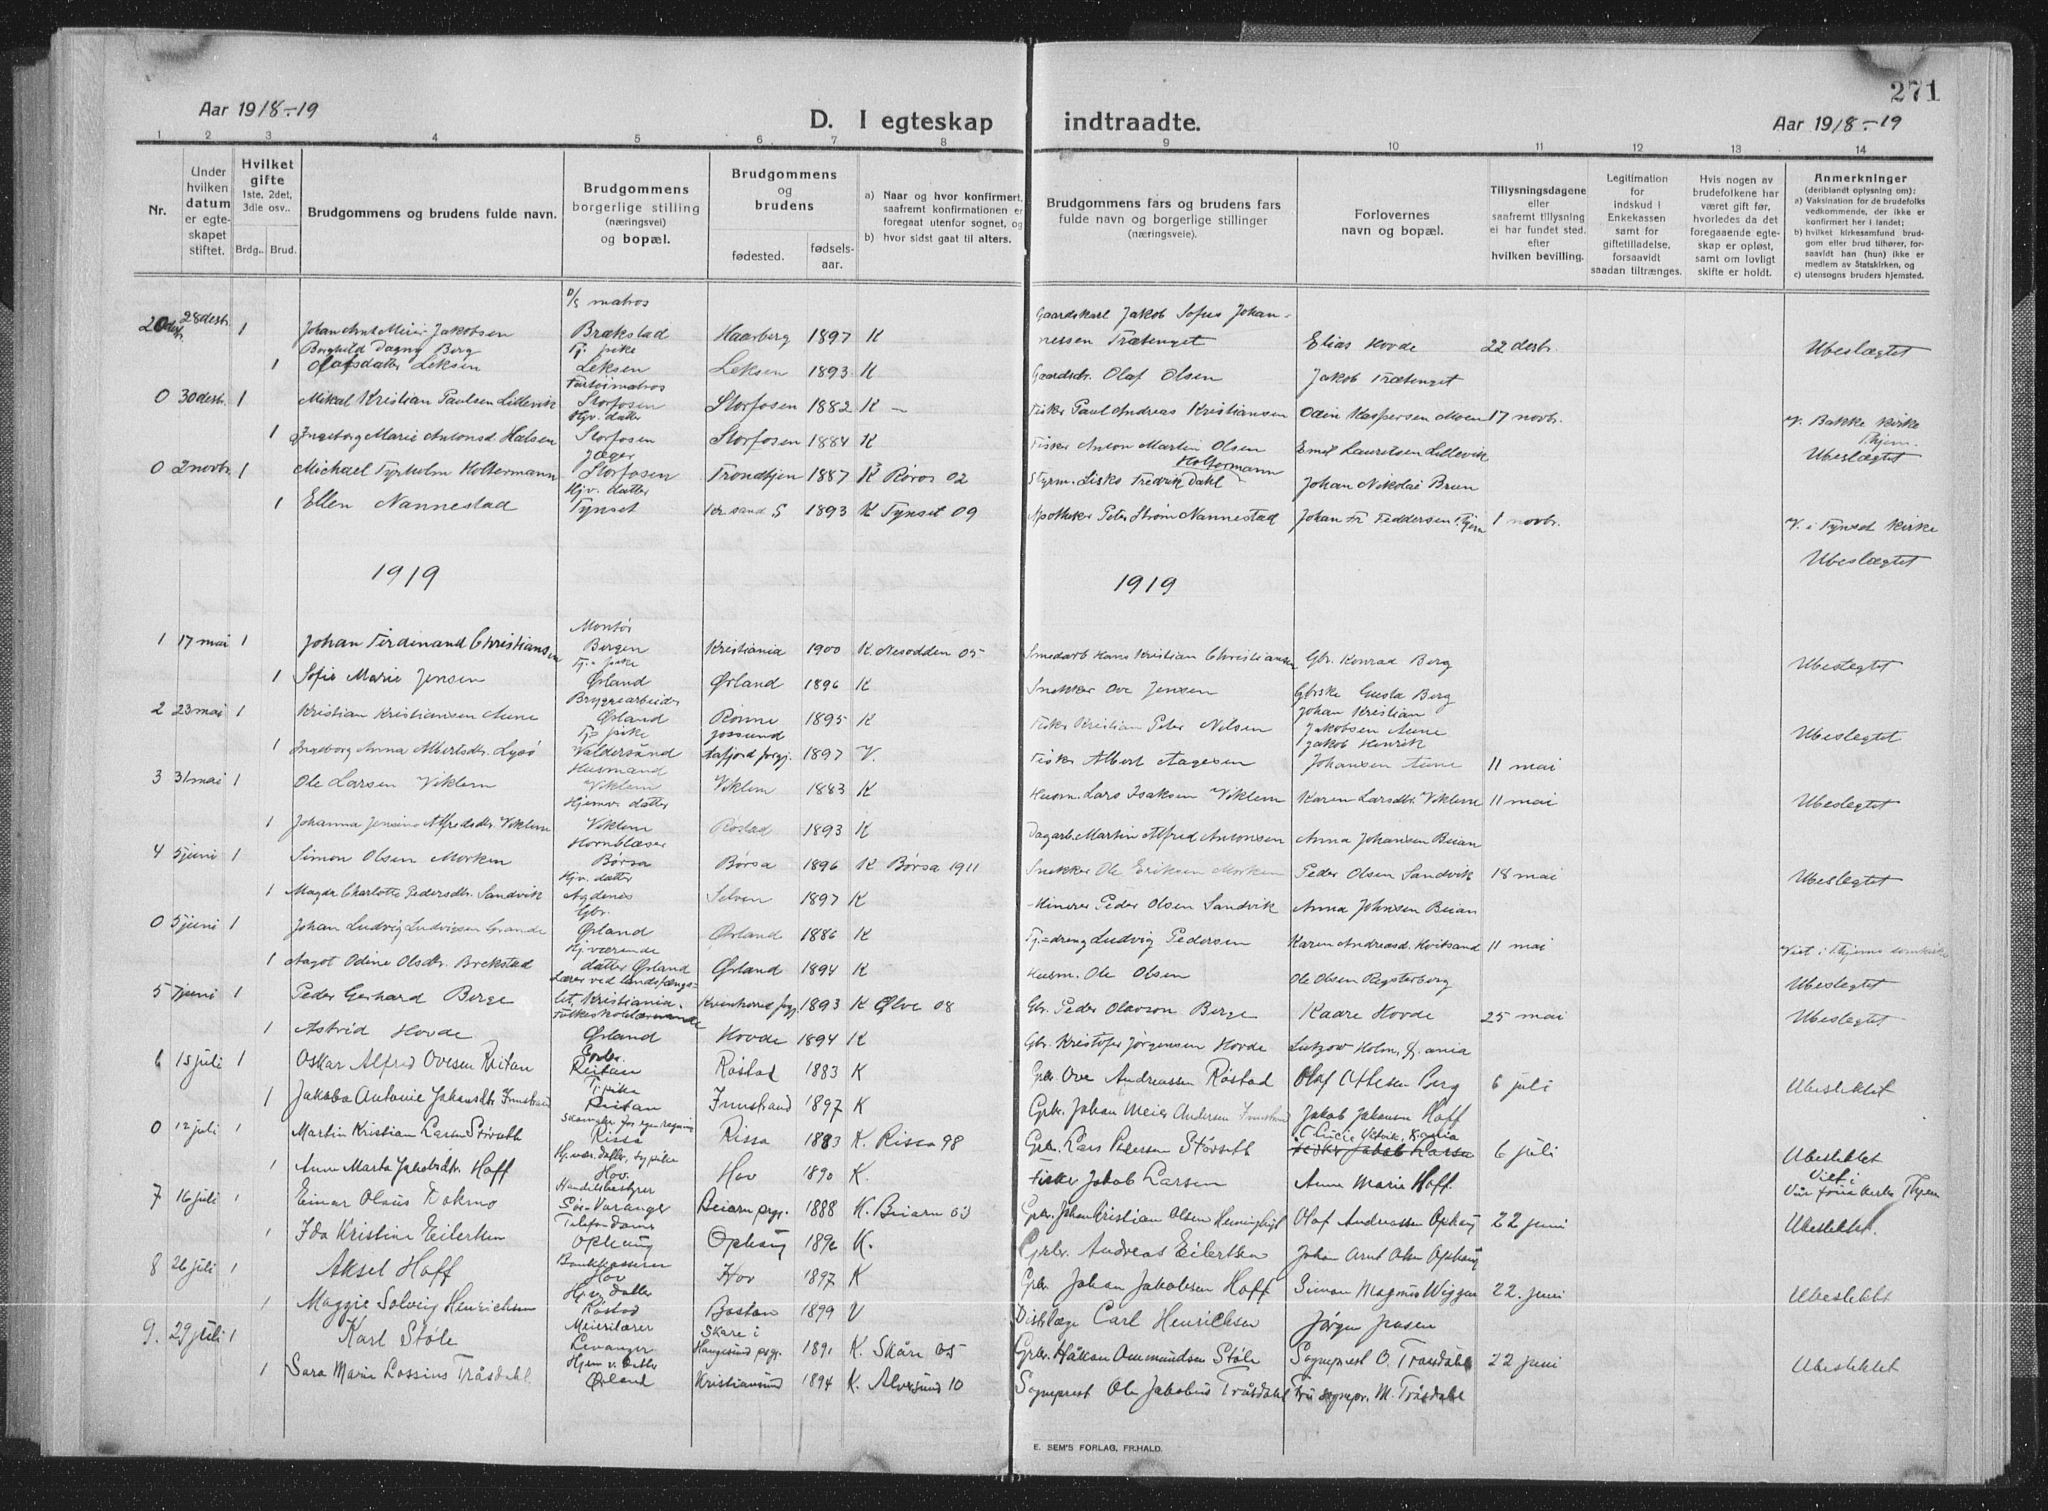 271
Aar 1918-19
D. I egteskap indtraadte.
Aar 1918-19
1 2 3 4 5 6 7 8 9 10 11 12 13 14
Nr.
Under hvilken datum er egteskapet stiftet.
Hvilket gifte 1ste, 2det, 3die osv..
Brdg.. Brud.
Brudgommens og brudens fulde navn.
Brudgommens borgerlige stilling (næringsvei) og bopæl.
Brudgommens og brudens
fødested.
fødselsaar.
a) Naar og hvor konfirmert, saafremt konfirmationen er foregaat utenfor sognet, og
b) hvor sidst gaat til alters.
Brudgommens fars og brudens fars fulde navn og borgerlige stillinger (næringsveie).
Forlovernes navn og bopæl.
Tillysningsdagene eller saafremt tillysning ei har fundet sted. efter hvilken bevilling.
Legitimation for indskud i Enkekassen samt for giftetilladelse, forsaavidt saadan tiltrænges.
Hvis nogen av brudefolkene har været gift før, hvorledes da det foregaaende egteskap er opløst, samt om lovligt skifte er holdt.
Anmerkninger (deriblandt oplysning om):
a) Vaksination for de brudefolks vedkommende, der ikke er konfirmert her i landet;
b) hvilket kirkesamfund brudgom eller brud tilhører, forsaavidt han (hun) ikke er medlem av Statskirken, og
c) utensogns bruders hjemsted.
20 28 desbr. 1 Johan Arnt Meier Jakobsen D/S matros Brækstad Haarberg 1897 K Gaardskarl Jakob Sofus Johannessen Trætenget Elias Hovde 22 desbr. Ubeslægtet
1 Borghild Dagny Berg Olafsdatter Leksen Tj. pike Leksen Leksen 1893 K Gaardbr. Olaf Olsen Jakob Trætenget
0 30 desbr. 1 Mikal Kristian Paulsen Lillevik Storfosen Storfosen 1882 K Fisker Paul Andreas Kristiansen Oden Kaspersen Moen 17 novbr. V. Bakke Kirke Thjem. Ubeslægtet
1 Ingeborg Marie Antonsd. Halsen Hjv. datter Storfosen Storfosen 1884 K Fisker Anton Martin Olsen Emil Lauritsen Lillevik
0 2 novbr. 1 Michael Tyrholm Holtermann Jæger Storfosen Trondhjem 1887 K Røros 02 Fredrik Dahl Holtermann Johan Nikolai Brun
1 Ellen Nannestad Hjv. datter Tynset Kr sand S 1893 K Tynset 09 Apotheker Peter Strøm Nannestad Johan Fr Feddersen Thjem 1 novbr. V. i Tynset Kirke Ubeslægtet
1919
1919
1 17 mai 1 Johan Ferdinand Christiansen Montør Bergen Kristiania 1900 K. Nesodden 05 Smedarb Hans Kristian Christiansen Gbr. Konrad Berg Ubeslegtet
1 Sofie Marie Jensen Tj. pike Ørland Ørland 1896 K Snekker Ove Jensen Gbrske Gusta Berg
2 23 mai 1 Kristian Kristiansen Aune Bryggearbeider Ørland Rønne 1895 K Fisker Kristian Peter Nilsen Johan Kristian Jakobsen Aune Ubeslegtet
1 Ingeborg Anna Albertsdtr. Lysø Tj. pike Valdersund Jossund 1897 V. Fisker Albert Aagesen Jakob Henrik Johansen Aune 11 mai
3 31 mai 1 Ole Larsen Viklem Husmand Viklem Viklem 1883 K Husm. Lars Isaksen Viklem Karen Larsdtr. Viklem 11 mai Ubeslegtet
1 Johanna Jensine Alfredsdtr. Viklem Hjemv. datter Viklem Røstad 1893 K Dagarb. Martin Alfred Antonsen Anna Johansen Beian
4 5 juni 1 Simon Olsen Morken Hornblæser Børsa Børsa 1896 K Børsa 1911 Snekker Ole Eriksen Morken Peder Olsen Sandvik 18 mai Ubeslegtet
1 Magda Charlotte Pedersdtr. Sandvik Hjv. datter Agdenes Selven 1897 K Minerer Peder Olsen Sandvik Anna Johnsen Beian
0 5 juni 1 Johan Ludvig Ludvigsen Grande Gbr. Ørland Ørland 1886 K Tj. dreng Ludvig Pedersen Karen Andreasd. Kvitsand 11 mai Viet i Thjems domkirke
1 Aagot Odine Olsdtr. Brekstad Hj. værende datter Ørland Ørland 1894 K Husm. Ole Olsen Ole Olsen Røgsterberg Ubeslegtet
5 7 juni 1 Peder Gerhard Berge Lærer ved landsfængslet, Kristiania. Kvinherred prgj. 1893 K Ølve 08 Gbr. Peder Olavson Berge Kaare Hovde 25 mai Ubeslegtet
1 Astrid Hovde Folkeskolelærerinde Ørland Hovde 1894 K Gbr. Kristofer Jørgensen Hovde Lutzow Holm, Kr.ania
6 15 juli 1 Oskar Alfred Ovesen Reitan Reitan Røstad 1883 K Grbr. Ove Andreassen Røstad Olaf Ottesen Berg 6 juli Ubeslektet
1 Jakoba Antonie Johansdtr. Innstrand Tj. pike Reitan Innstrand 1897 K Grbr. Johan Meier Andersen Innstrand Jakob Jakobsen Hoff
0 12 juli 1 Martin Kristian Larsen Størseth Rissa Rissa 1883 K. Rissa 98 Grbr. Lars Pedersen Størseth 6 juli Ubeslektet
1 Anne Marta Jakobsdtr. Hoff Hj. vær. datter, sypike Hov Hov 1890 K. Fisker Jakob Larsen Anne Marie Hoff. Viet i Vår frue kirke Thjem
7 16 juli 1 Einar Olaus Dahmo Handelsbestyrer Sør-Varanger Beiarn prgj. 1888 K. Beiarn 03 Grbr. Johan Kristian Olsen Olaf Andreassen Ophaug 22 juni Ubeslektet.
1 Ida Kristine Eilertsen Telefondame Ophaug Ophaug 1896 K. Grbr. Andreas Eilertsen Johan Arnt Olsen Ophaug
8 26 juli 1 Aksel Hoff Bankkasserer Hov Hov 1897 K Grbr. Johan Jakobsen Hoff Simon Magnus Wiggen 22. juni Ubeslektet
1 Maggie Solveig Henrichsen Hjv. datter Røstad Boston 1899 V Distr.læge Carl Henrichsen Jørgen Jensen
9. 29 juli 1 Karl Støle Meierilærer Levanger Skåre i Haugesund prgj. 1891 K. Skåre 05 Grbr. Håkon Ommundsen Støle Sogneprest O. Tråsdahl 22 juni Ubeslektet
1 Sara Marie Lossius Tråsdahl. Hjem v. datter Ørland Kristiansund 1894 K. Alversund 10 Sogneprest Ole Jakobus Tråsdahl Fru sognepr. M. Tråsdahl
E. SEM'S FORLAG, FR.HALD.